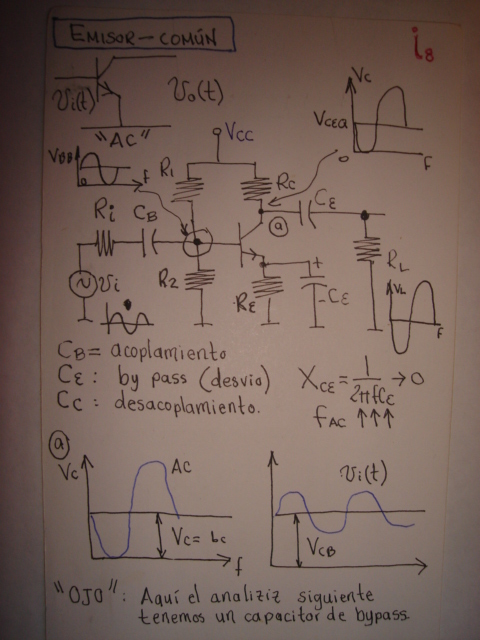 EMISOR-COMÚN
i8
Vi(t)
Vo(t)
"AC"
Vc
VCEQ
o
F
VBB
f
R1
Vcc
Rc
Cε
a
Ri
CB
R2
Rε
+
-Cε
RL
Vi
VL
F
CB= acoplamiento
Cε: by pass (desvio)
Cc: desacoplamiento.
XCε= 1/2πfCε → 0
fAC ↑↑↑
a
Vc
AC
Vc=
f
Vi(t)
VCB
"OJO": Aquí el analiziz siguiente
tenemos un capacitor de bypass.